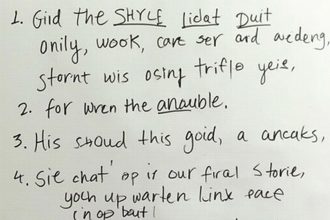 1. Giid the SHYLE Lidat Duit
onily, wook, care ser ard aedeng,
stornt wis osing triflo yeis,
2. for wren the anauble.
3. His shoud this goid, a ancaks,
4. Sie chat' op is our firal Storie,
yoch up warten linx face